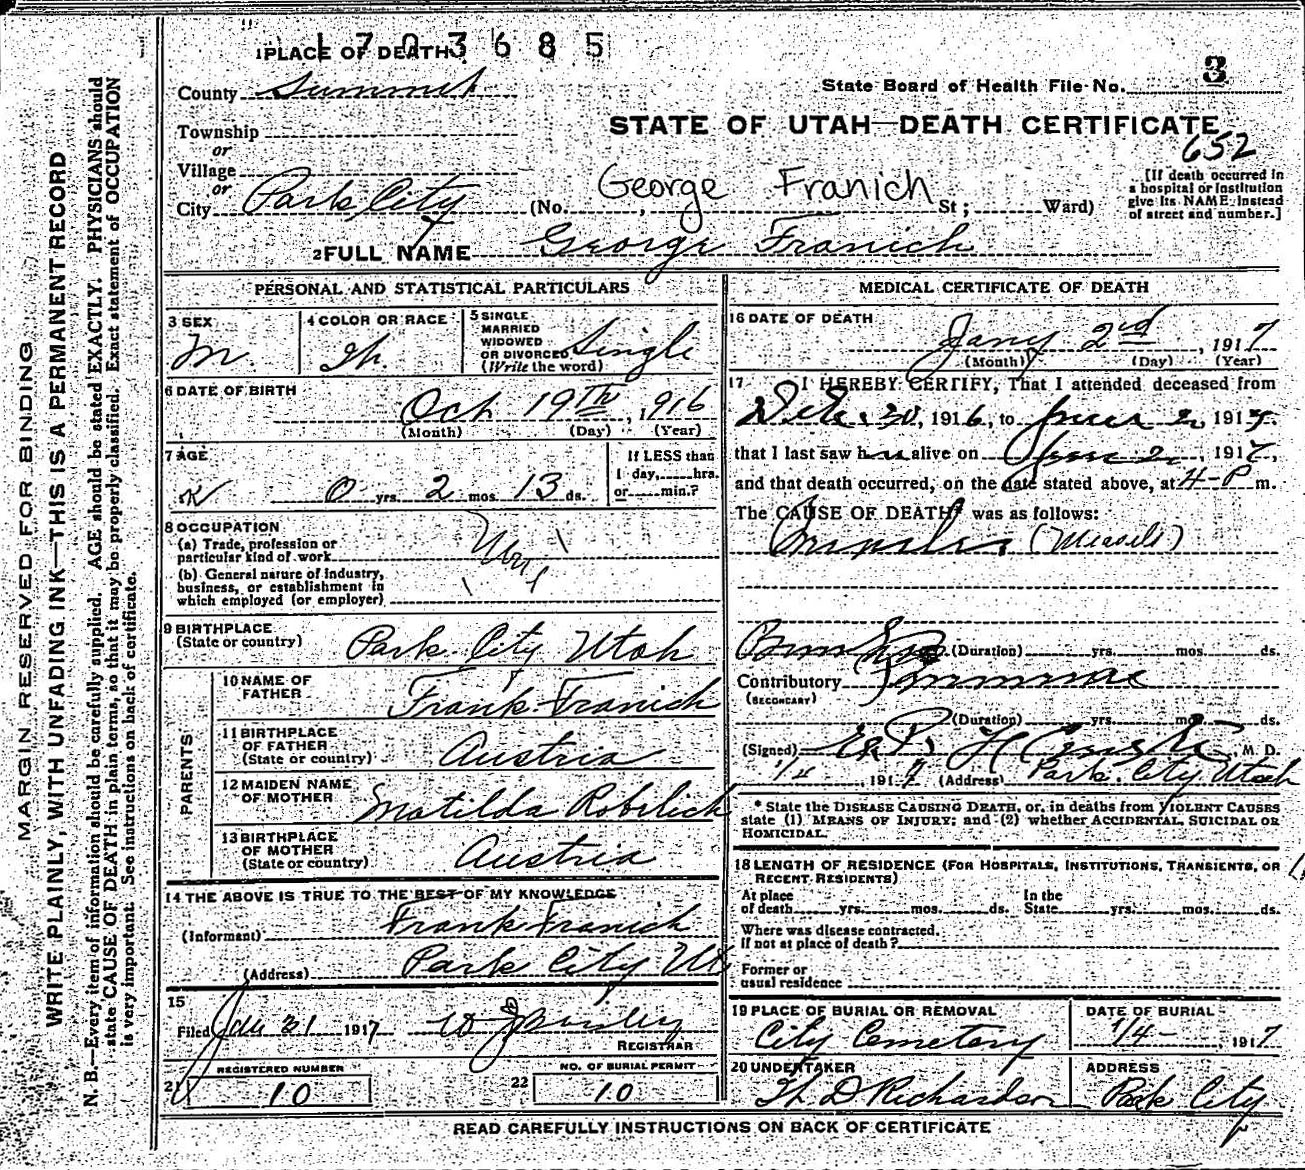 1 PLACE OF DEATH
1703685
County Summit
State Board of Health File No. 3
Township
or
STATE OF UTAH—DEATH CERTIFICATE
652
Village
or
City Park City (No. , George Franich St; Ward)
[If death occurred in
a hospital or institution
give its NAME instead
of street and number.]
2 FULL NAME George Franich
PERSONAL AND STATISTICAL PARTICULARS
3 SEX
M.
4 COLOR OR RACE
W.
5 SINGLE
MARRIED
WIDOWED
OR DIVORCED Single
(Write the word)
6 DATE OF BIRTH
Oct 19TH, 1916
(Month) (Day) (Year)
7 AGE
0 yrs. 2 mos. 13 ds.
If LESS than
1 day, hrs.
or min.?
8 OCCUPATION
(a) Trade, profession or
particular kind of work
(b) General nature of industry,
business, or establishment in
which employed (or employer)
9 BIRTHPLACE
(State or country) Park City Utah
PARENTS
10 NAME OF
FATHER Frank Franich
11 BIRTHPLACE
OF FATHER
(State or country) Austria
12 MAIDEN NAME
OF MOTHER Matilda Robilich
13 BIRTHPLACE
OF MOTHER
(State or country) Austria
14 THE ABOVE IS TRUE TO THE BEST OF MY KNOWLEDGE
(Informant) Frank Franich
(Address) Park City Ut
15
Filed 1917
REGISTRAR
21 REGISTERED NUMBER
10
22 NO. OF BURIAL PERMIT
10
MEDICAL CERTIFICATE OF DEATH
16 DATE OF DEATH
Jany 2nd, 1917
(Month) (Day) (Year)
17 I HEREBY CERTIFY, That I attended deceased from
1916, to 2, 1917,
that I last saw h alive on 2, 1917,
and that death occurred, on the date stated above, at 4-P m.
The CAUSE OF DEATH* was as follows:
(Measels)
(Duration) yrs. mos. ds.
Contributory
(SECONDARY)
(Duration) yrs. mos. ds.
(Signed) M. D.
191 (Address) Park City Utah
* State the DISEASE CAUSING DEATH, or, in deaths from VIOLENT CAUSES
state (1) MEANS OF INJURY; and (2) whether ACCIDENTAL, SUICIDAL OR
HOMICIDAL.
18 LENGTH OF RESIDENCE (FOR HOSPITALS, INSTITUTIONS, TRANSIENTS, OR
RECENT RESIDENTS)
At place In the
of death yrs. mos. ds. State yrs. mos. ds.
Where was disease contracted,
if not at place of death?
Former or
usual residence
19 PLACE OF BURIAL OR REMOVAL
City Cemetery
DATE OF BURIAL
1/4 - , 1917
20 UNDERTAKER
D Richardson
ADDRESS
Park City
READ CAREFULLY INSTRUCTIONS ON BACK OF CERTIFICATE
MARGIN RESERVED FOR BINDING
WRITE PLAINLY, WITH UNFADING INK—THIS IS A PERMANENT RECORD
N. B.—Every item of information should be carefully supplied. AGE should be stated EXACTLY. PHYSICIANS should
state CAUSE OF DEATH in plain terms, so that it may be properly classified. Exact statement of OCCUPATION
is very important. See instructions on back of certificate.